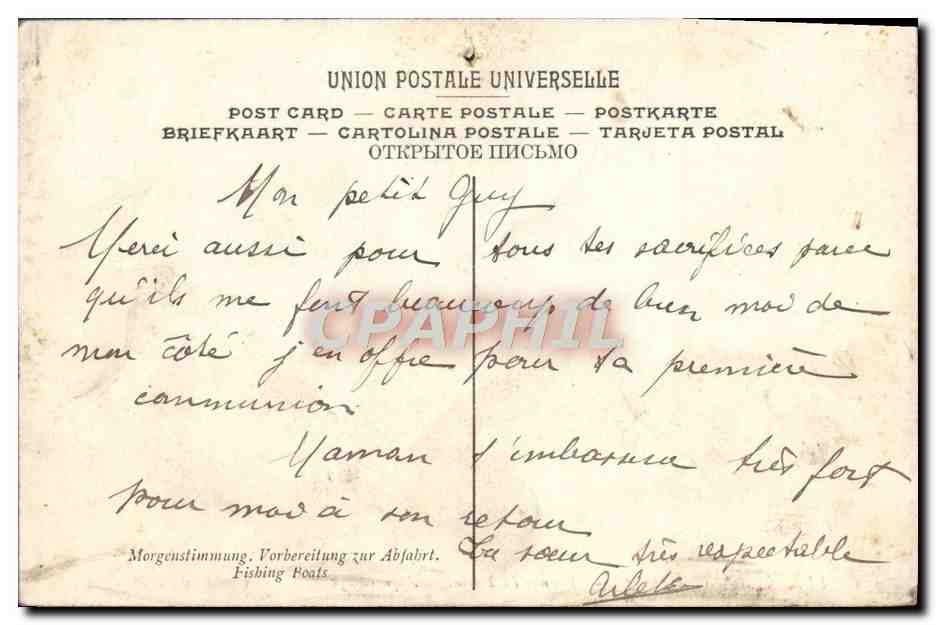 UNION POSTALE UNIVERSELLE
POST CARD — CARTE POSTALE — POSTKARTE
BRIEFKAART — CARTOLINA POSTALE — TARJETA POSTAL
ОТКРЫТОЕ ПИСЬМО
Mon petit Guy
Merci aussi pour tous tes sacrifices parce
qu'ils me font beaucoup de bien moi de
mon côté j'en offre pour ta première
communion
CPAPHIL
Maman t'embrasse très fort
pour moi à son retour
Morgenstimmung. Vorbereitung zur Abfahrt.
Fishing Boats
Ta sœur très respectable
Arlette